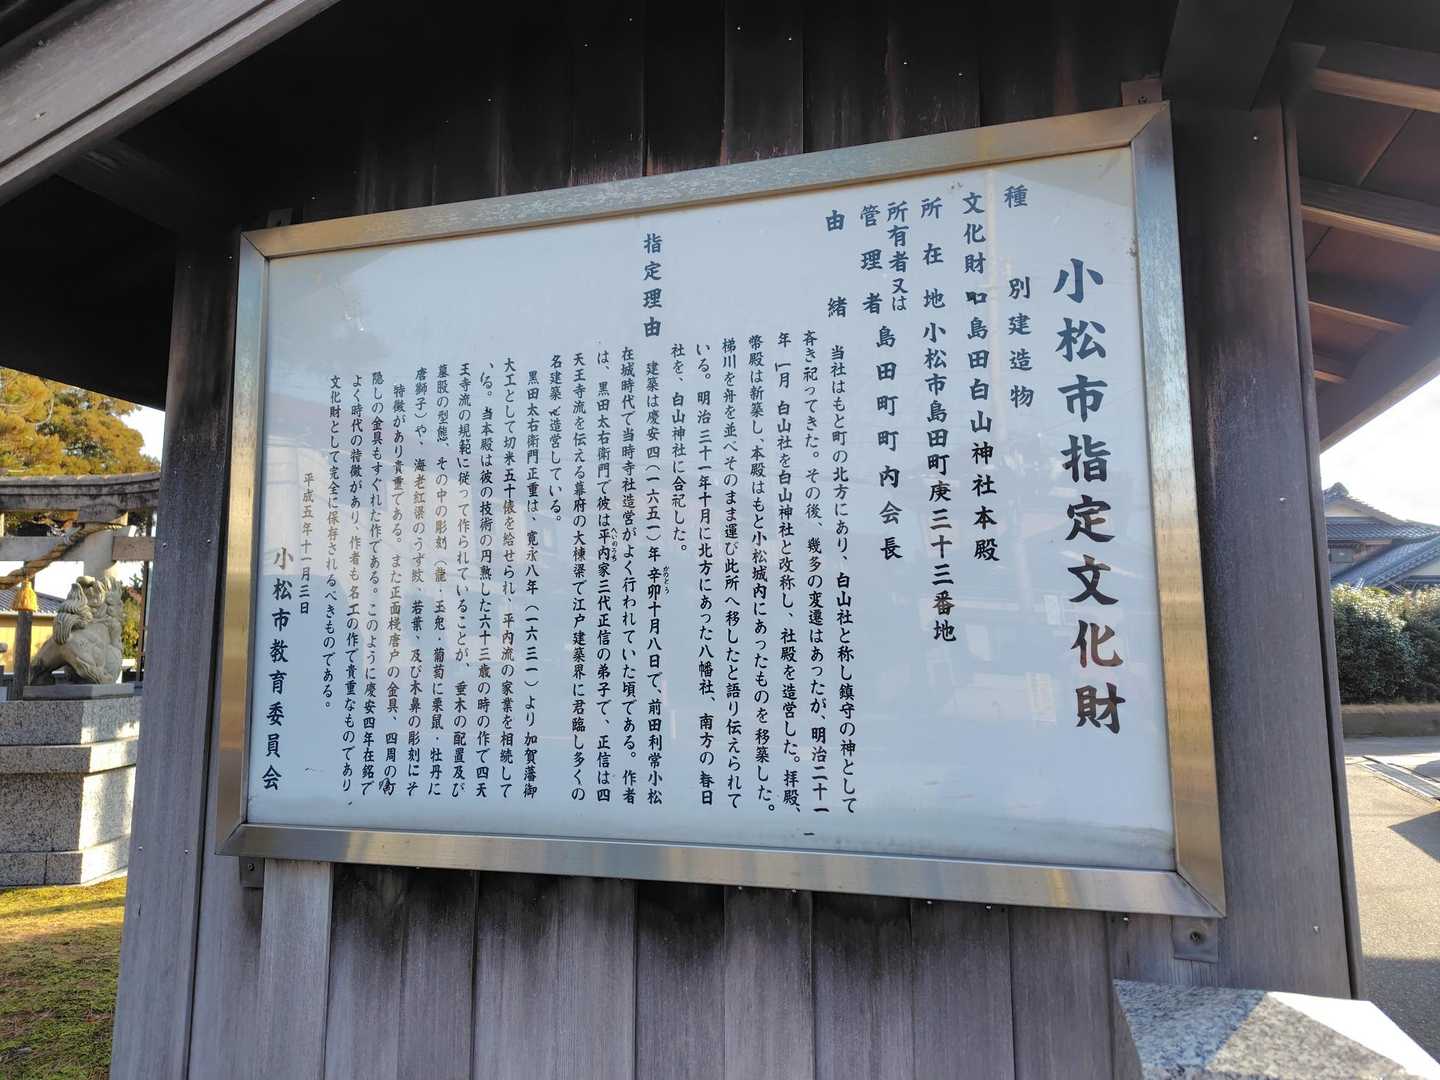 小松市指定文化財
種別 建造物
文化財 島田白山神社本殿
所在地 小松市島田町庚三十三番地
所有者又は
管理者 島田町町内会長
由緒 当社はもと町の北方にあり、白山社と称し鎮守の神として
斉き祀ってきた。その後、幾多の変遷はあったが、明治二十一
年一月 白山社を白山神社と改称し、社殿を造営した。拝殿、
幣殿は新築し、本殿はもと小松城内にあったものを移築した。
梯川を舟を並べそのまま運び此所へ移したと語り伝えられて
いる。明治三十一年十月に北方にあった八幡社、南方の春日
社を、白山神社に合祀した。
指定理由 建築は慶安四(一六五一)年辛卯十月八日で、前田利常小松
かのとう
在城時代で当時寺社造営がよく行われていた頃である。作者
は、黒田太右衛門で彼は平内家三代正信の弟子で、正信は四
へいのうち
天王寺流を伝える幕府の大棟梁で江戸建築界に君臨し多くの
名建築を造営している。
黒田太右衛門正重は、寛永八年(一六三一)より加賀藩御
大工として切米五十俵を給せられ、平内流の家業を相続して
いる。当本殿は彼の技術の円熟した六十三歳の時の作で四天
王寺流の規範に従って作られていることが、垂木の配置及び
墓股の型態、その中の彫刻(龍・玉兎・葡萄に栗鼠・牡丹に
唐獅子)や、海老紅梁のうず紋、若葉、及び木鼻の彫刻にそ
特徴があり貴重である。また正面桟唐戸の金具、四周の釘
隠しの金具もすぐれた作である。このように慶安四年在銘で
よく時代の特徴があり、作者も名工の作で貴重なものであり、
文化財として完全に保存されるべきものである。
平成五年十一月三日
小松市教育委員会